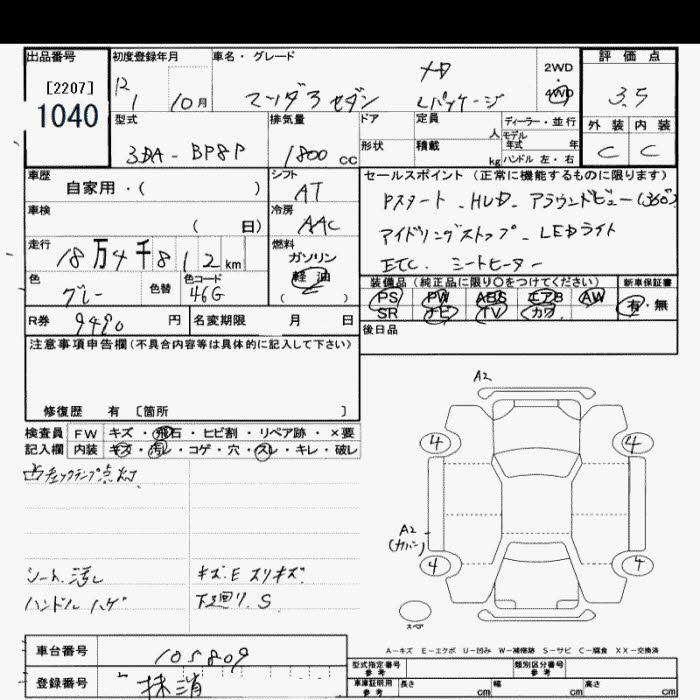 出品番号 初度登録年月 車名・グレード 評価点
[2207] 2WD・4WD
1040 10月 マツダ3セダン Lパッケージ 3.5
型式 排気量 ドア 定員 人 ディーラー・並行 外装 内装
3DA-BP8P 1800 cc 形状 積載 kg モデル年式 年式 ハンドル 左・右 C C
車歴 シフト セールスポイント (正常に機能するものに限ります)
自家用・( ) AT Pスタート. HUD. アラウンドビュー(360°)
車検 ( 日) 冷房 AAC アイドリングストップ. LEDライト
走行 18万4千812km 燃料 ガソリン・軽油 ( ) ETC. シートヒーター
色 グレー 色替 色コード 46G 装備品 (純正品に限り○をつけてください) 新車保証書
PS PW ABS エアB AW 有・無
SR ナビ TV カワ
R券 9490円 名変期限 月 日 後日品
注意事項申告欄(不具合内容等は具体的に記入して下さい)
修復歴 有 〔箇所 〕
検査員 FW キズ・飛石・ヒビ割・リペア跡・×要
記入欄 内装 キズ・汚レ・コゲ・穴・スレ・キレ・破レ
チェックランプ点灯
シート.汚レ キズ.E スリキズ.
ハンドルハゲ 下廻り.S
A2
4 4
A2
(カバン)
4 4
スペア
A-キズ E-エクボ U-凹み W-補修跡 S-サビ C-腐食 XX-交換済
車台番号 105809 型式指定番号 参考 類別区分番号 参考
登録番号 抹消 車庫証明用 参考 長さ cm 幅 cm 高さ cm